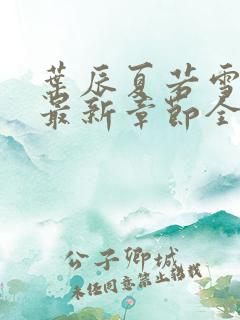 葉辰夏若雪
最新章節全
公子卿城
未经同意禁止转载